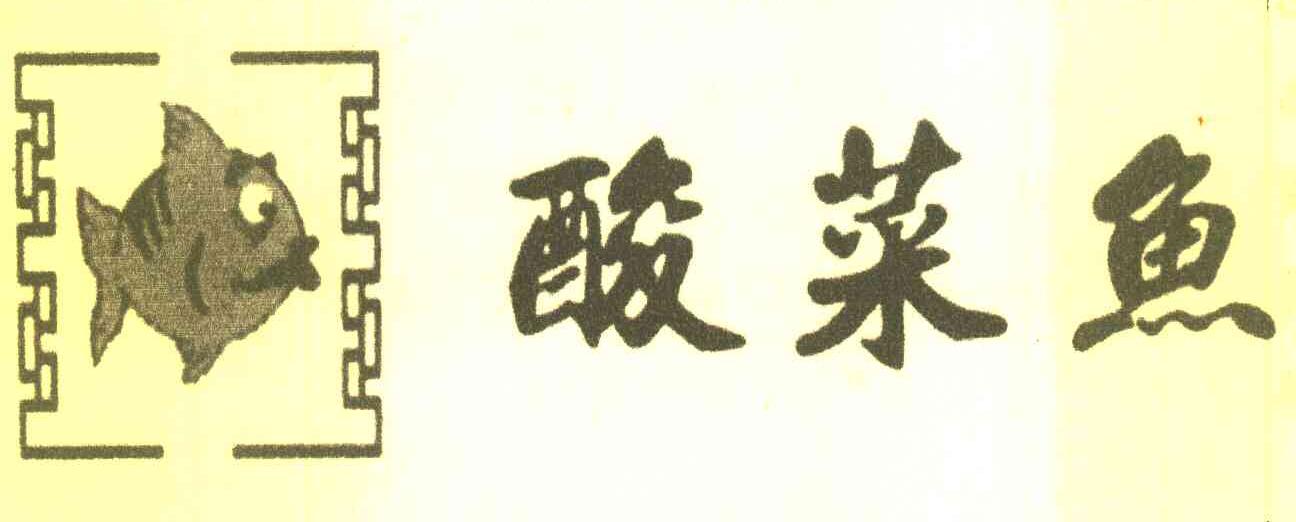 酸菜魚